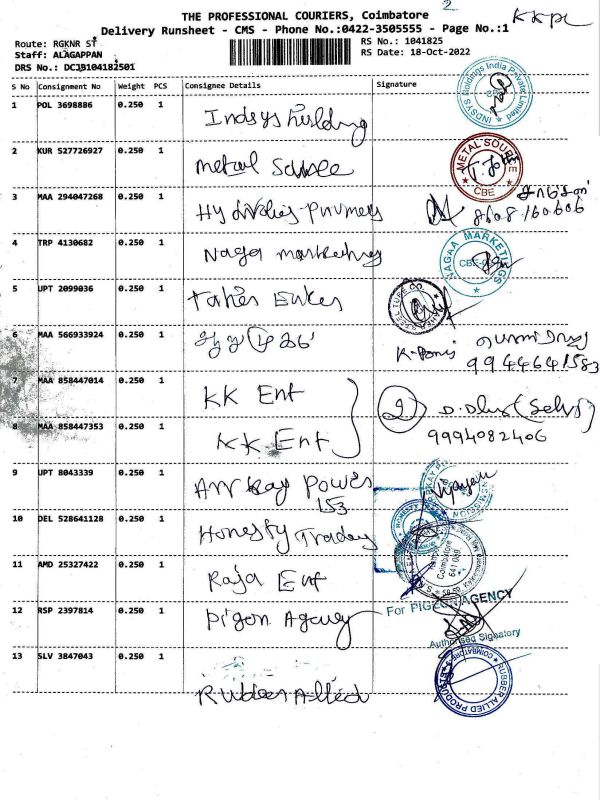 2
KKPC
THE PROFESSIONAL COURIERS, Coimbatore
Delivery Runsheet - CMS - Phone No.:0422-3505555 - Page No.:1
Route: RGKNR ST
RS No.: 1041825
Staff: ALAGAPPAN
RS Date: 18-Oct-2022
DRS No.: DCJB104182501
S No Consignment No Weight PCS Consignee Details Signature
1 POL 3698886 0.250 1 Indsys Holding
INDSYS Holdings India Private Limited
2 KUR 527726927 0.250 1 Metal Source
METAL SOURCE CBE
3 MAA 294047268 0.250 1
8608160606
4 TRP 4130682 0.250 1 Naga Marketing
NAGAA MARKETINGS
5 UPT 2099036 0.250 1
6 MAA 566933924 0.250 1
9944641583
7 MAA 858447014 0.250 1 KK Ent
8 MAA 858447353 0.250 1 KK Ent
2 D. (Selvi)
9994082406
9 UPT 8043339 0.250 1 Kay Power
153
Vijayan
10 DEL 528641128 0.250 1 Honesty Trading
11 AMD 25327422 0.250 1 Raja Ent
Coimbatore
12 RSP 2397814 0.250 1 Pigon Agency
For PIGEON AGENCY
Authorised Signatory
13 SLV 3847043 0.250 1 Rubber Allied
RUBBER ALLIED PRODUCTS